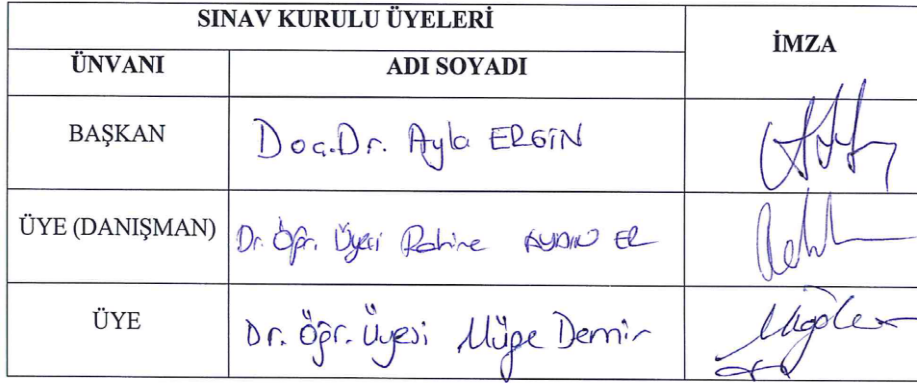 SINAV KURULU ÜYELERİ
İMZA
ÜNVANI ADI SOYADI
BAŞKAN Doç.Dr. Ayla ERGİN
ÜYE (DANIŞMAN) Dr. Öğr. Üyesi Rahime AYDIN ER
ÜYE Dr. Öğr. Üyesi Müge Demir